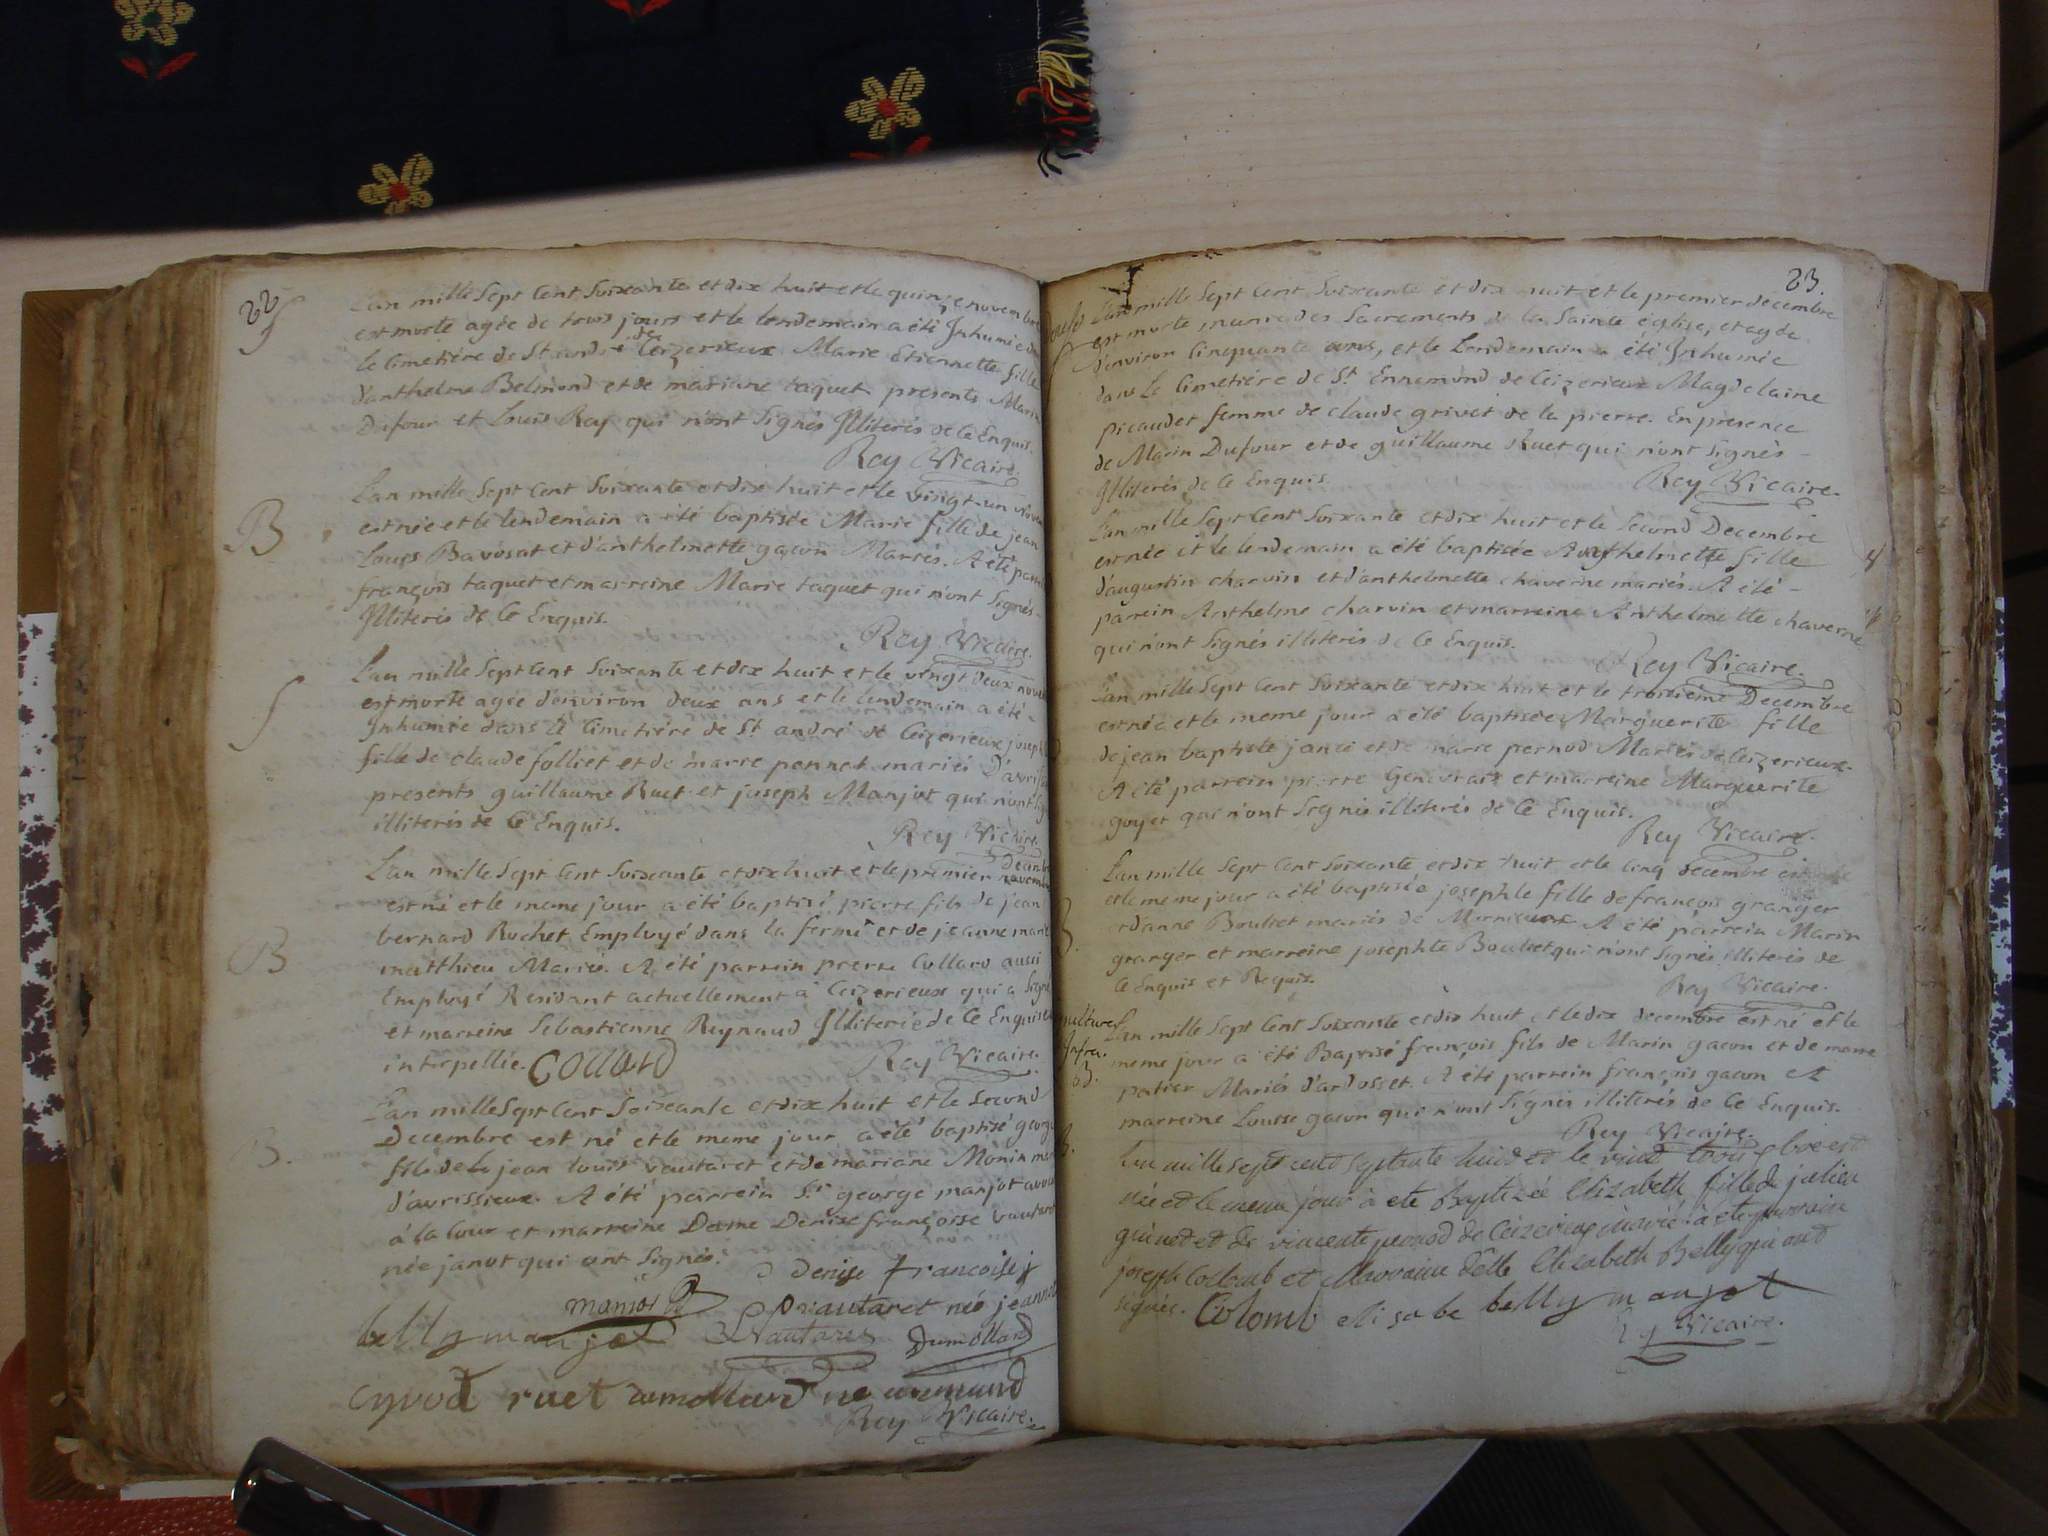 22
S
L'an mille Sept Cent Soixante et dix huit et le quinze novembre
est morte agée de trois jours et le lendemain a été Inhumée dans
le Cimetiére de St andré de Ceizerieux Marie Etiennette fille
d'anthelme Belmond et de mariane taquet presents Marin
Dufour et Louis Rey qui n'ont Signés Illiterés de ce Enquis.
Rey Vicaire.
B
L'an mille Sept Cent Soixante et dix huit et le vingt-un nove
est née et le lendemain a été baptisée Marie fille de jean
Louis Bavosat et d'anthelmette gacon Mariés. A été parr
françois taquet et marreine Marie taquet qui n'ont Signés
Illiterés de Ce Enquis.
Rey Vicaire.
S
L'an mille Sept Cent Soixante et dix huit et le vingt deux nove
est morte agée d'environ deux ans et le lendemain a été
Inhumée dans le Cimetiére de St andré de Ceizerieux joseph
fille de claude folliet et de marie pennet mariés D'avris
presents guillaume Ruet et joseph Manjot qui n'ont Sig
illiterés de Ce Enquis.
Rey Vicaire.
decemb
B
L'an mille Sept Cent Soixante et dix huit et le premier novemb
est né et le meme jour a été baptisé pierre fils de jean
bernard Rochet Employé dans la ferme et de jeanne mari
matthieu Mariés. A été parrein pierre Collard aussi
Employé Residant actuellement a Ceizerieux qui a Signé
et marreine Sebastienne Reynaud Illiterée de Ce Enquise
interpellée. Collard
Rey Vicaire.
B.
L'an mille Sept Cent Soixante et dix huit et le Second
Decembre est né et le meme jour a été baptisé george
fils de jean louis vautaret et de mariane Monin mar
d'avrissieux. A été parrein Sr george manjot avoca
à la Cour et marreine Dame Denise françoise vautaret
née janot qui ont Signés.
Denise francoise
manjot vautaret né jeannot
belly manjot Vautaret Dumollard
Cyvod ruet dumollard né
Rey Vicaire.
23.
L'an mille Sept Cent Soixante et dix huit et le premier decembre
est morte munie des Sacrements de la Sainte église, et agée
d'environ Cinquante ans, et le Lendemain a été Inhumée
dans Le Cimetiére de St Ennemond de Ceizerieux Magdelaine
picaudet femme de claude grivet de la pierre. En presence
de Marin Dufour et de guillaume Ruet qui n'ont Signés
Illiterés de Ce Enquis.
Rey Vicaire.
L'an mille Sept Cent Soixante et dix huit et le Second Decembre
est née et le lendemain a été baptisée Anthelmette fille
d'augustin charvin et d'anthelmette chaverne mariés. A été
parrein Anthelme charvin et marreine Anthelmette chaverne
qui n'ont Signés illiterés de Ce Enquis.
Rey Vicaire.
L'an mille Sept Cent Soixante et dix huit et le troisieme Decembre
est née et le meme jour a été baptisée Marguerite fille
de jean baptiste janei et de marie pernod Mariés de Ceizerieux.
A été parrein pierre Genevrais et marreine Marguerite
goyet qui n'ont Signés illiterés de Ce Enquis.
Rey Vicaire.
L'an mille Sept Cent Soixante et dix huit et le Cinq decembre est
et le meme jour a été baptisée josephte fille de françois granger
et d'anne Boulset mariés de Mornieux A été parrein Marin
granger et marreine josephte Boulset qui n'ont Signés illiterés de
Ce Enquis et Requis.
Rey Vicaire.
L'an mille Sept Cent Soixante et dix huit et le dix decembre est né et le
meme jour a été Baptisé françois fils de Marin gacon et de marie
patier Mariés d'ardosset. A été parrein françois gacon et
marreine Louise gacon qui n'ont Signés illiterés de Ce Enquis.
Rey Vicaire.
B.
L'an mille sept cent septante huid et le vind trois xbre est
née et le meme jour à ete Baptizée Elizabeth fille de julien
guinet et de vincente pernod de Ceizerieux mariés à ete parrain
joseph Collomb et Marraine delle Elizabeth Belly qui ont
signés. Colomb elisabe belly manjot
Rey Vicaire.